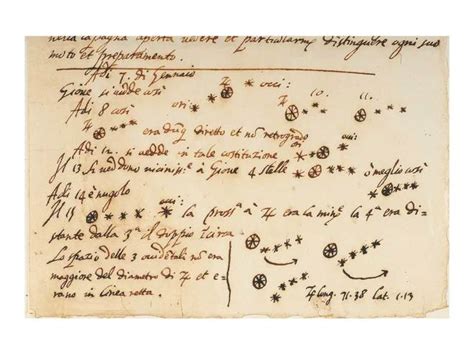 nella capagna aperta vedere et particularmᵉ distinguere ogni suo
moto et preparamento.
Adi 7. di Gennaio
Giove si vedde così ♃ occi: 10. 11.
Adi 8 così ori:
♃ era dūq diretto et nō retrogrado
Adi 12. si vedde in tale costituzione ori occi:
Il 13 si veddono vicinissᵉ à Giove 4 stelle ò meglio così
Adi 14 è nugolo
Il 15 la prossᵃ à ♃ era la minᵉ la 4ᵃ era di-
stante dalla 3ᵃ il doppio circa
Lo spazio delle 3 occidētali nō era
maggiore del diametro di ♃ et e-
rano in linea retta.
♃ long. 71.38 lat. 1.13